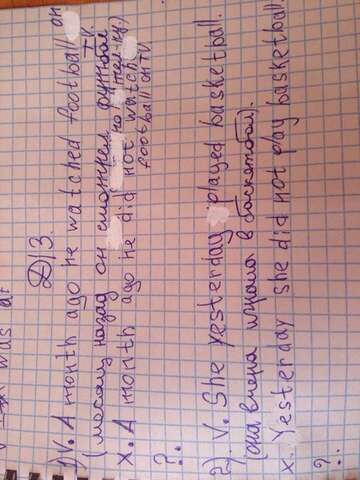 was a
Д/З.
1) V. A month ago he watched football on TV.
(месяц назад он смотрел футбол по тел-ку.)
X. A month ago he did not watch
football on TV
?.
2). V. She yesterday played basketball.
(она вчера играла в баскетбол).
X. Yesterday she did not play basketball
?.